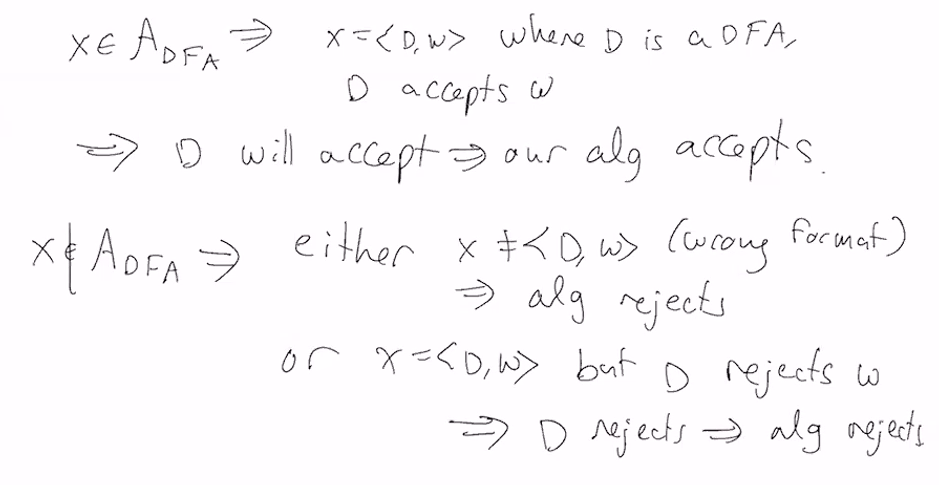 x ∈ A_DFA ⇒ x = <D, w> where D is a DFA,
D accepts w
⇒ D will accept ⇒ our alg accepts.
x ∉ A_DFA ⇒ either x ≠ <D, w> (wrong format)
⇒ alg rejects
or x = <D, w> but D rejects w
⇒ D rejects ⇒ alg rejects